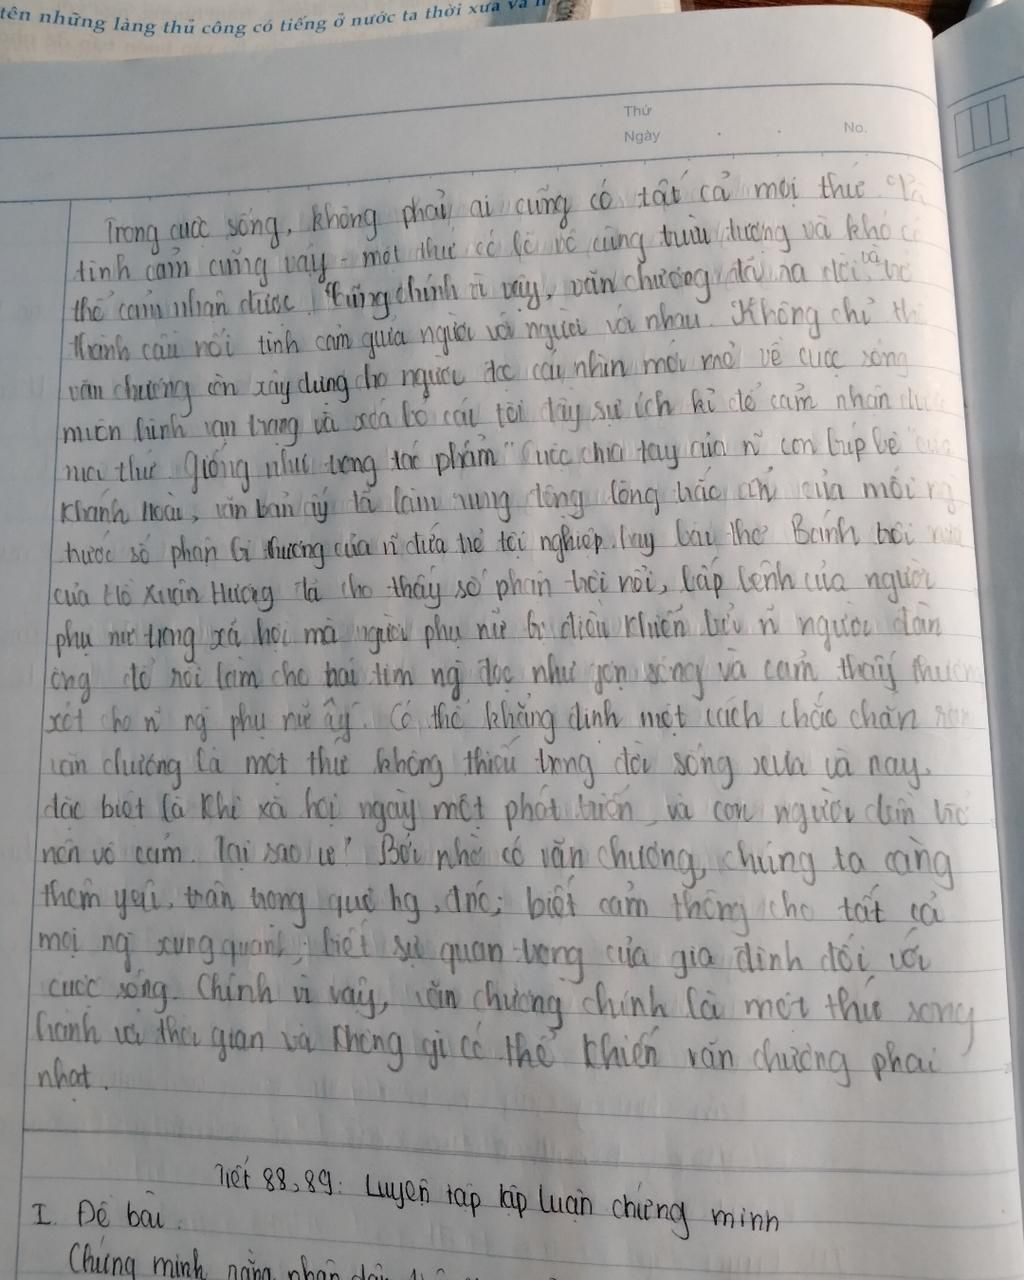 tên những làng thủ công có tiếng ở nước ta thời xưa và n
Thứ
Ngày
No.
Trong cuộc sống, không phải ai cũng có tất cả mọi thứ
tình cảm cũng vậy - một thứ có lẽ vô cùng trừu tượng và khó có
thể cảm nhận được. Cũng chính vì vậy, văn chương đã ra đời và trở
thành cầu nối tình cảm giữa người với người với nhau. Không chỉ th
văn chương còn xây dựng cho người đọc cái nhìn mới mẻ về cuộc sống
muôn hình vạn trạng và xoá bỏ cái tôi đầy sự ích kỉ để cảm nhận
mọi thứ. Giống như trong tác phẩm "Cuộc chia tay của n~ con búp bê" của
Khánh Hoài, văn bản ấy đã làm rung động lòng trắc ẩn của mỗi
trước số phận bi thương của n~ đứa trẻ tội nghiệp hay bài thơ Bánh trôi
của Hồ Xuân Hương đã cho thấy số phận trôi nổi, bấp bênh của người
phụ nữ trong xã hội mà người phụ nữ bị điều khiển bởi n~ người đàn
ông để rồi làm cho trái tim ng đọc như gợn sóng và cảm thấy thương
xót cho n~ ng phụ nữ ấy. Có thể khẳng định một cách chắc chắn
văn chương là một thứ không thiếu trong đời sống xưa và nay,
đặc biệt là khi xã hội ngày một phát triển và con người dần trở
nên vô cảm. Tại sao ư? Bởi nhờ có văn chương, chúng ta càng
thêm yêu, trân trọng quê hg, đnc; biết cảm thông cho tất cả
mọi ng xung quanh; biết sự quan trọng của gia đình đối với
cuộc sống. Chính vì vậy, văn chương chính là một thứ song
hành với thời gian và không gì có thể khiến văn chương phai
nhạt.
Tiết 88, 89: Luyện tập lập luận chứng minh
I. Đề bài.
Chứng minh rằng nhân dân